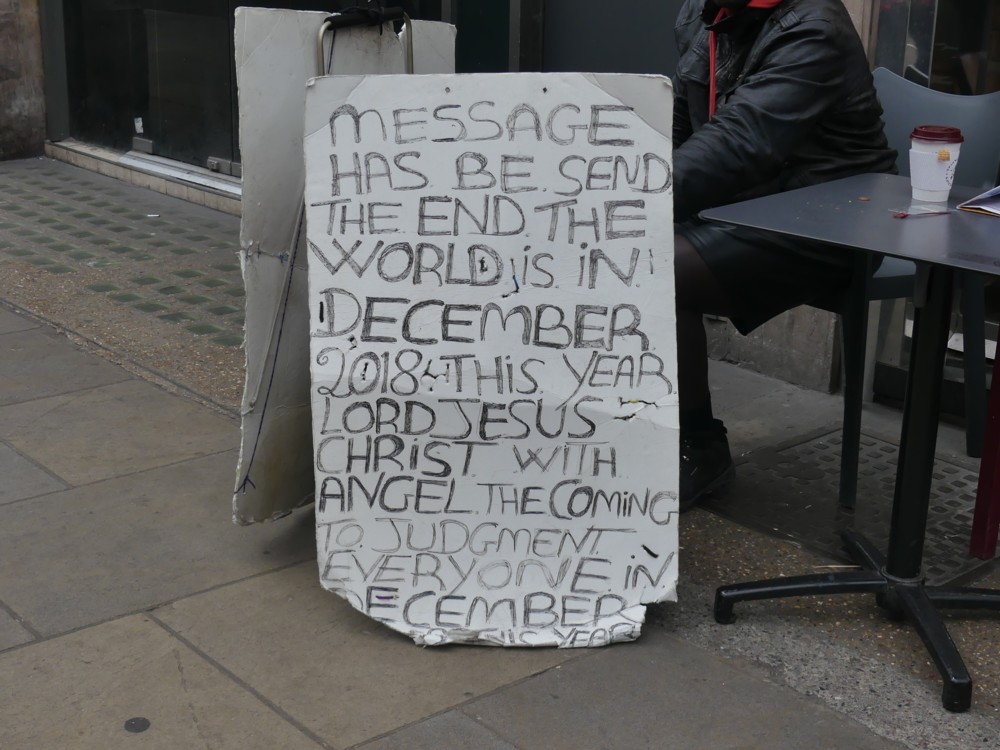 MESSAGE
HAS BE SEND
THE END THE
WORLD IS IN
DECEMBER
2018 THIS YEAR
LORD JESUS
CHRIST WITH
ANGEL. THE COMING
TO JUDGMENT
EVERYONE IN
DECEMBER
THIS YEAR